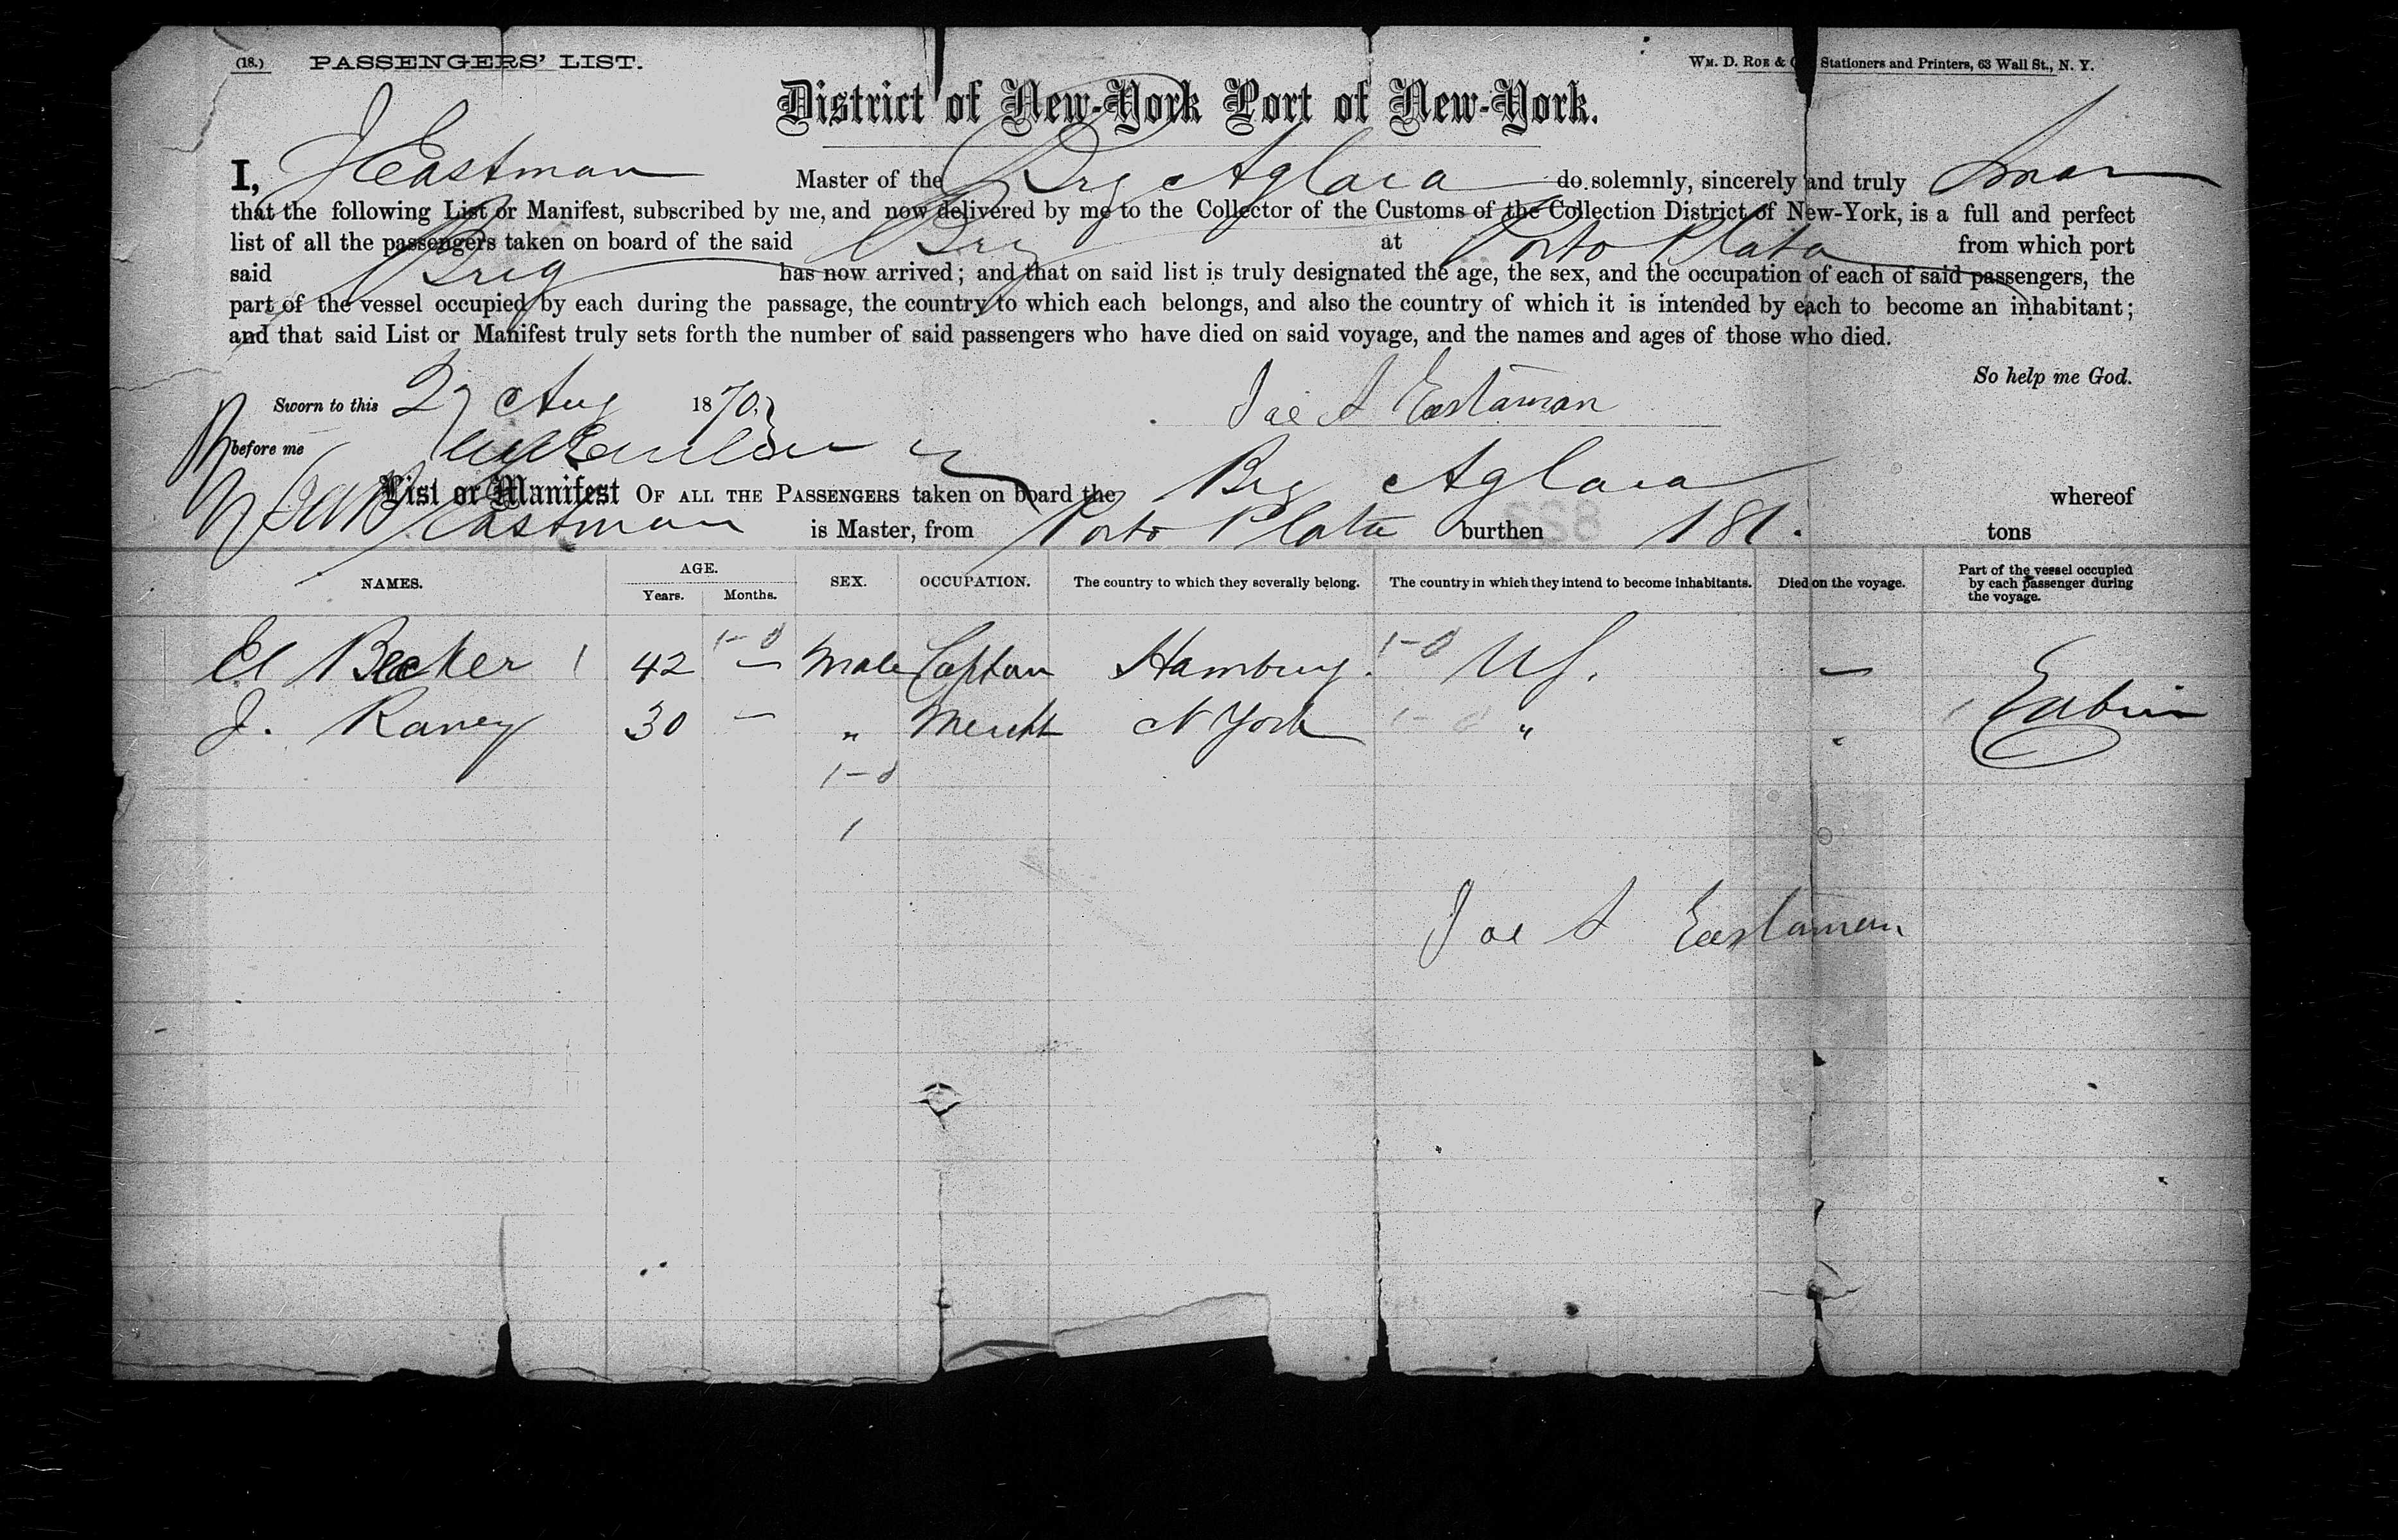 (18.) PASSENGERS' LIST. Wm. D. Roe & Stationers and Printers, 63 Wall St., N. Y.
District of New-York Port of New-York.
I, J Eastman Master of the Brg Aglaia do solemnly, sincerely and truly swear
that the following List or Manifest, subscribed by me, and now delivered by me to the Collector of the Customs of the Collection District of New-York, is a full and perfect
list of all the passengers taken on board of the said Brig at Porto Plata from which port
said Brig has now arrived; and that on said list is truly designated the age, the sex, and the occupation of each of said passengers, the
part of the vessel occupied by each during the passage, the country to which each belongs, and also the country of which it is intended by each to become an inhabitant;
and that said List or Manifest truly sets forth the number of said passengers who have died on said voyage, and the names and ages of those who died.
So help me God.
Sworn to this 27 Aug 1870. Joe A Eastaman
before me
List or Manifest OF ALL THE PASSENGERS taken on board the Brg Aglaia whereof
Eastman is Master, from Porto Plata burthen 181. tons
NAMES. AGE. Years. Months. SEX. OCCUPATION. The country to which they severally belong. The country in which they intend to become inhabitants. Died on the voyage. Part of the vessel occupied by each passenger during the voyage.
Becker 1 42 1-0 — Male Captan Hamburg. 1-0 US. —
J. Raney 30 — " Mercht N York 1-0 " " 1 Cabin
1-0
1
Joe A Eastaman